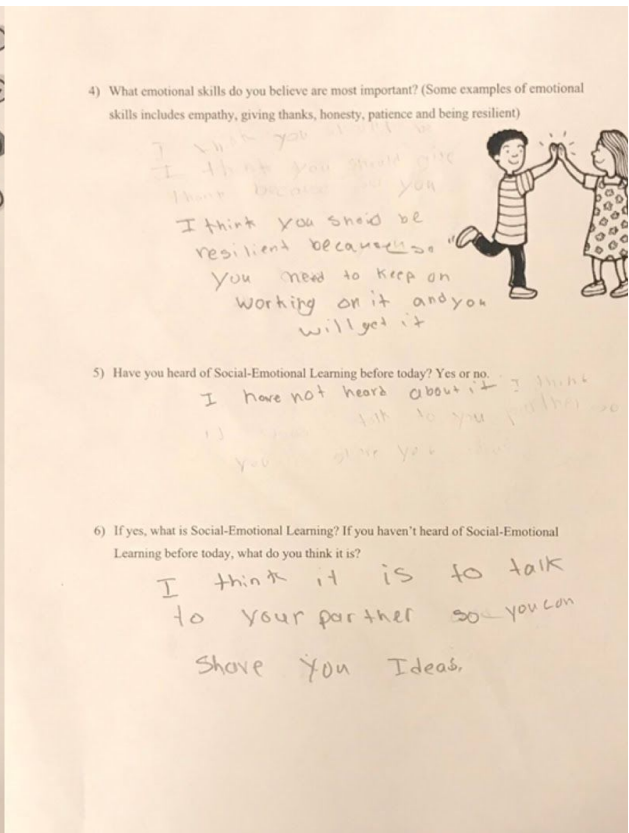 4) What emotional skills do you believe are most important? (Some examples of emotional
skills includes empathy, giving thanks, honesty, patience and being resilient)
I think you
I think you should give
you
I think you shoid be
resilient because
you need to keep on
working on it and you
will get it
5) Have you heard of Social-Emotional Learning before today? Yes or no.
I have not heard about it I think
talk to you
you
6) If yes, what is Social-Emotional Learning? If you haven't heard of Social-Emotional
Learning before today, what do you think it is?
I think it is to talk
to your parther so you can
Share you Ideas.